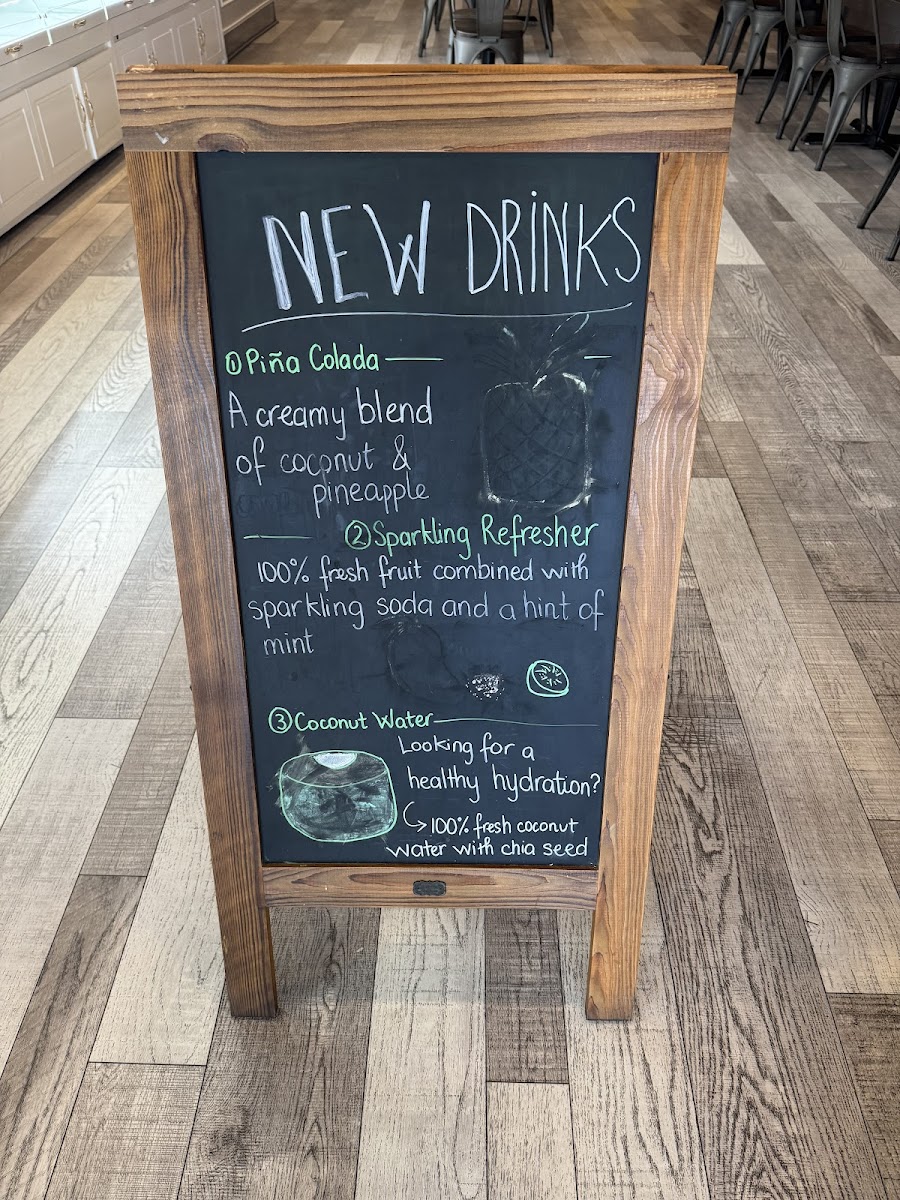 NEW DRINKS
① Piña Colada
A creamy blend
of coconut &
pineapple
② Sparkling Refresher
100% fresh fruit combined with
sparkling soda and a hint of
mint
③ Coconut Water
Looking for a
healthy hydration?
→ 100% fresh coconut
water with chia seed